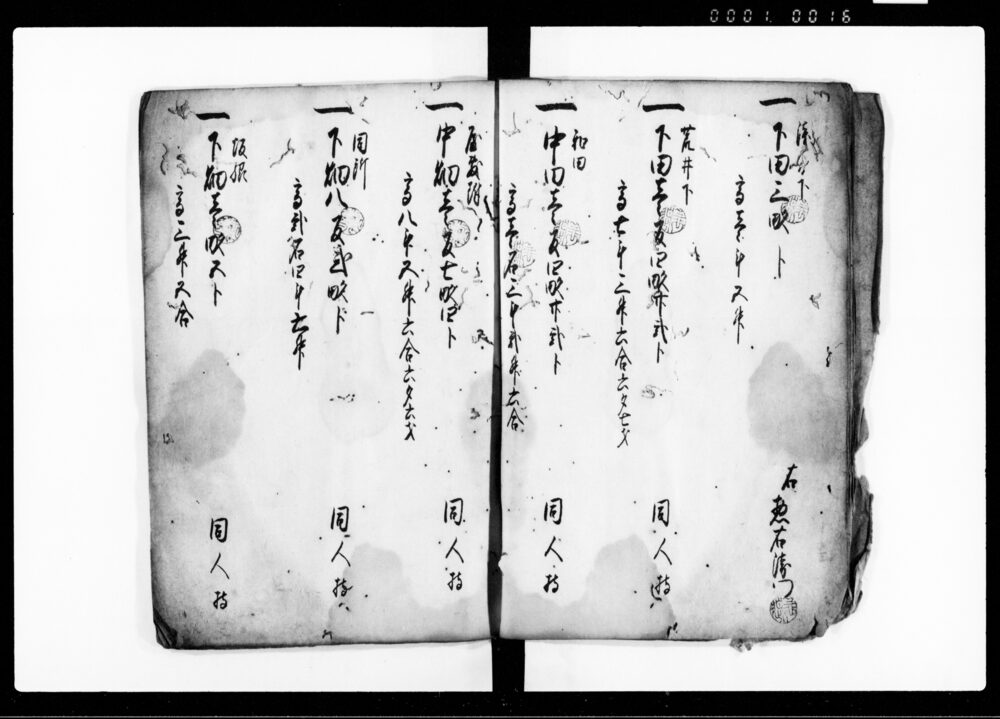 0001 0016
一 下田三畝卜
高壱斗五升
右惣右衛門
荒井下
一 下田壱反四畝廿弐卜
高七斗三升六合六夕七才
同人持
和田
一 中田壱反四畝廿弐卜
高壱石三斗弐升六合
同人持
一 中畑壱反七畝四卜
高八斗五升六合六夕六才
同人持
同所
一 下畑八反弐畝卜
高弐石四斗六升
同人持
坂根
一 下畑壱畝五卜
高三升五合
同人持